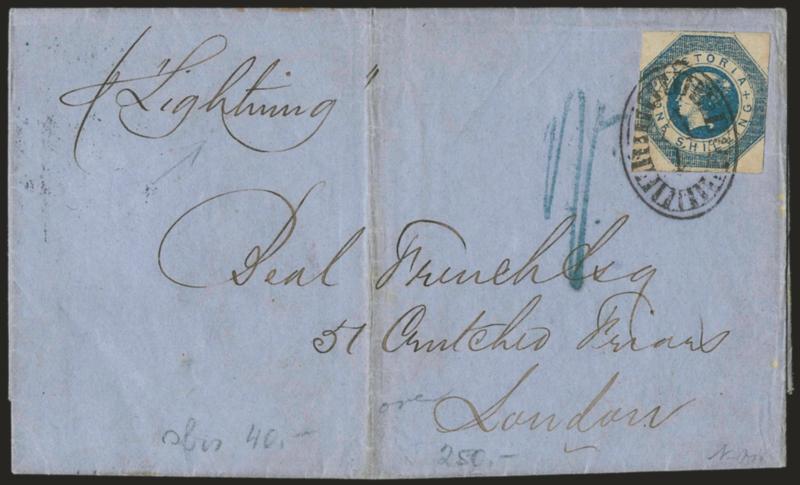 "Lightning"
VICTORIA
ONE SHILLING
1/-
Deal French Esq
51 Crutched Friars
London
40.-
250.-